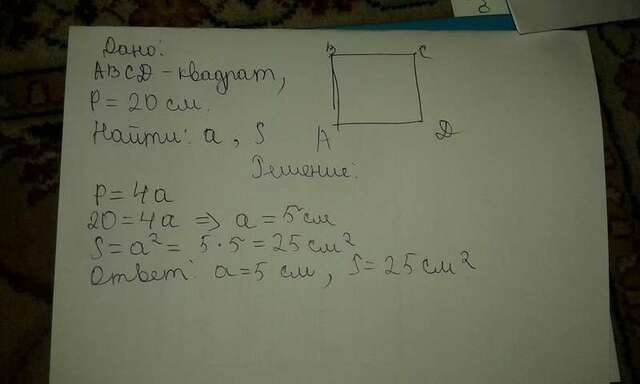 Дано:
ABCD - квадрат,
P = 20 см.
Найти: a, S
B C
A D
Решение:
P = 4a
20 = 4a => a = 5 см
S = a² = 5 · 5 = 25 см²
Ответ: a = 5 см, S = 25 см²